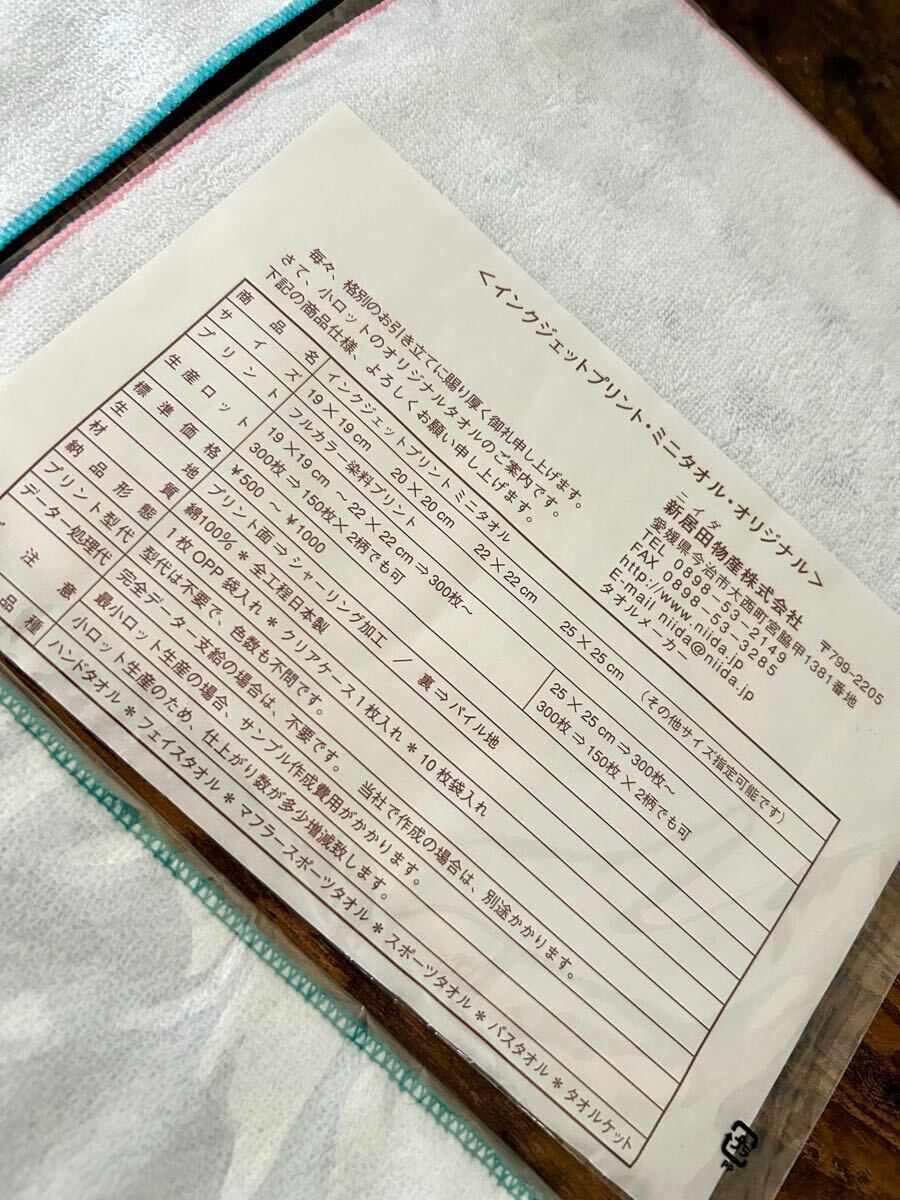 ＜インクジェットプリント・ミニタオル・オリジナル＞
ニイダ
新居田物産株式会社 〒799-2205
愛媛県今治市大西町宮脇甲1381番地
TEL 0898-53-2149
FAX 0898-53-3285
http://www.niida.jp
E-mail niida@niida.jp
タオルメーカー
毎々、格別のお引き立てに賜り厚く御礼申し上げます。
さて、小ロットのオリジナルタオルのご案内です。
下記の商品仕様、よろしくお願い申し上げます。
商品名 インクジェットプリントミニタオル
サイズ 19×19cm 20×20cm 22×22cm 25×25cm (その他サイズ指定可能です)
プリント フルカラー染料プリント
生産ロット 19×19cm ～ 22×22cm⇒300枚～ 25×25cm⇒300枚～
300枚⇒150枚×2柄でも可 300枚⇒150枚×2柄でも可
標準価格 ¥500～¥1000
生地 プリント面⇒シャーリング加工 / 裏⇒パイル地
材質 綿100% ＊全工程日本製
納品形態 1枚OPP袋入れ＊クリアケース1枚入れ＊10枚袋入れ
プリント型代 型代は不要で、色数も不問です。
データー処理代 完全データー支給の場合は、不要です。 当社で作成の場合は、別途かかります。
注意 最小ロット生産の場合、サンプル作成費用がかかります。
小ロット生産のため、仕上がり数が多少増減致します。
品種 ハンドタオル＊フェイスタオル＊マフラースポーツタオル＊スポーツタオル＊バスタオル＊タオルケット
プラ
PP